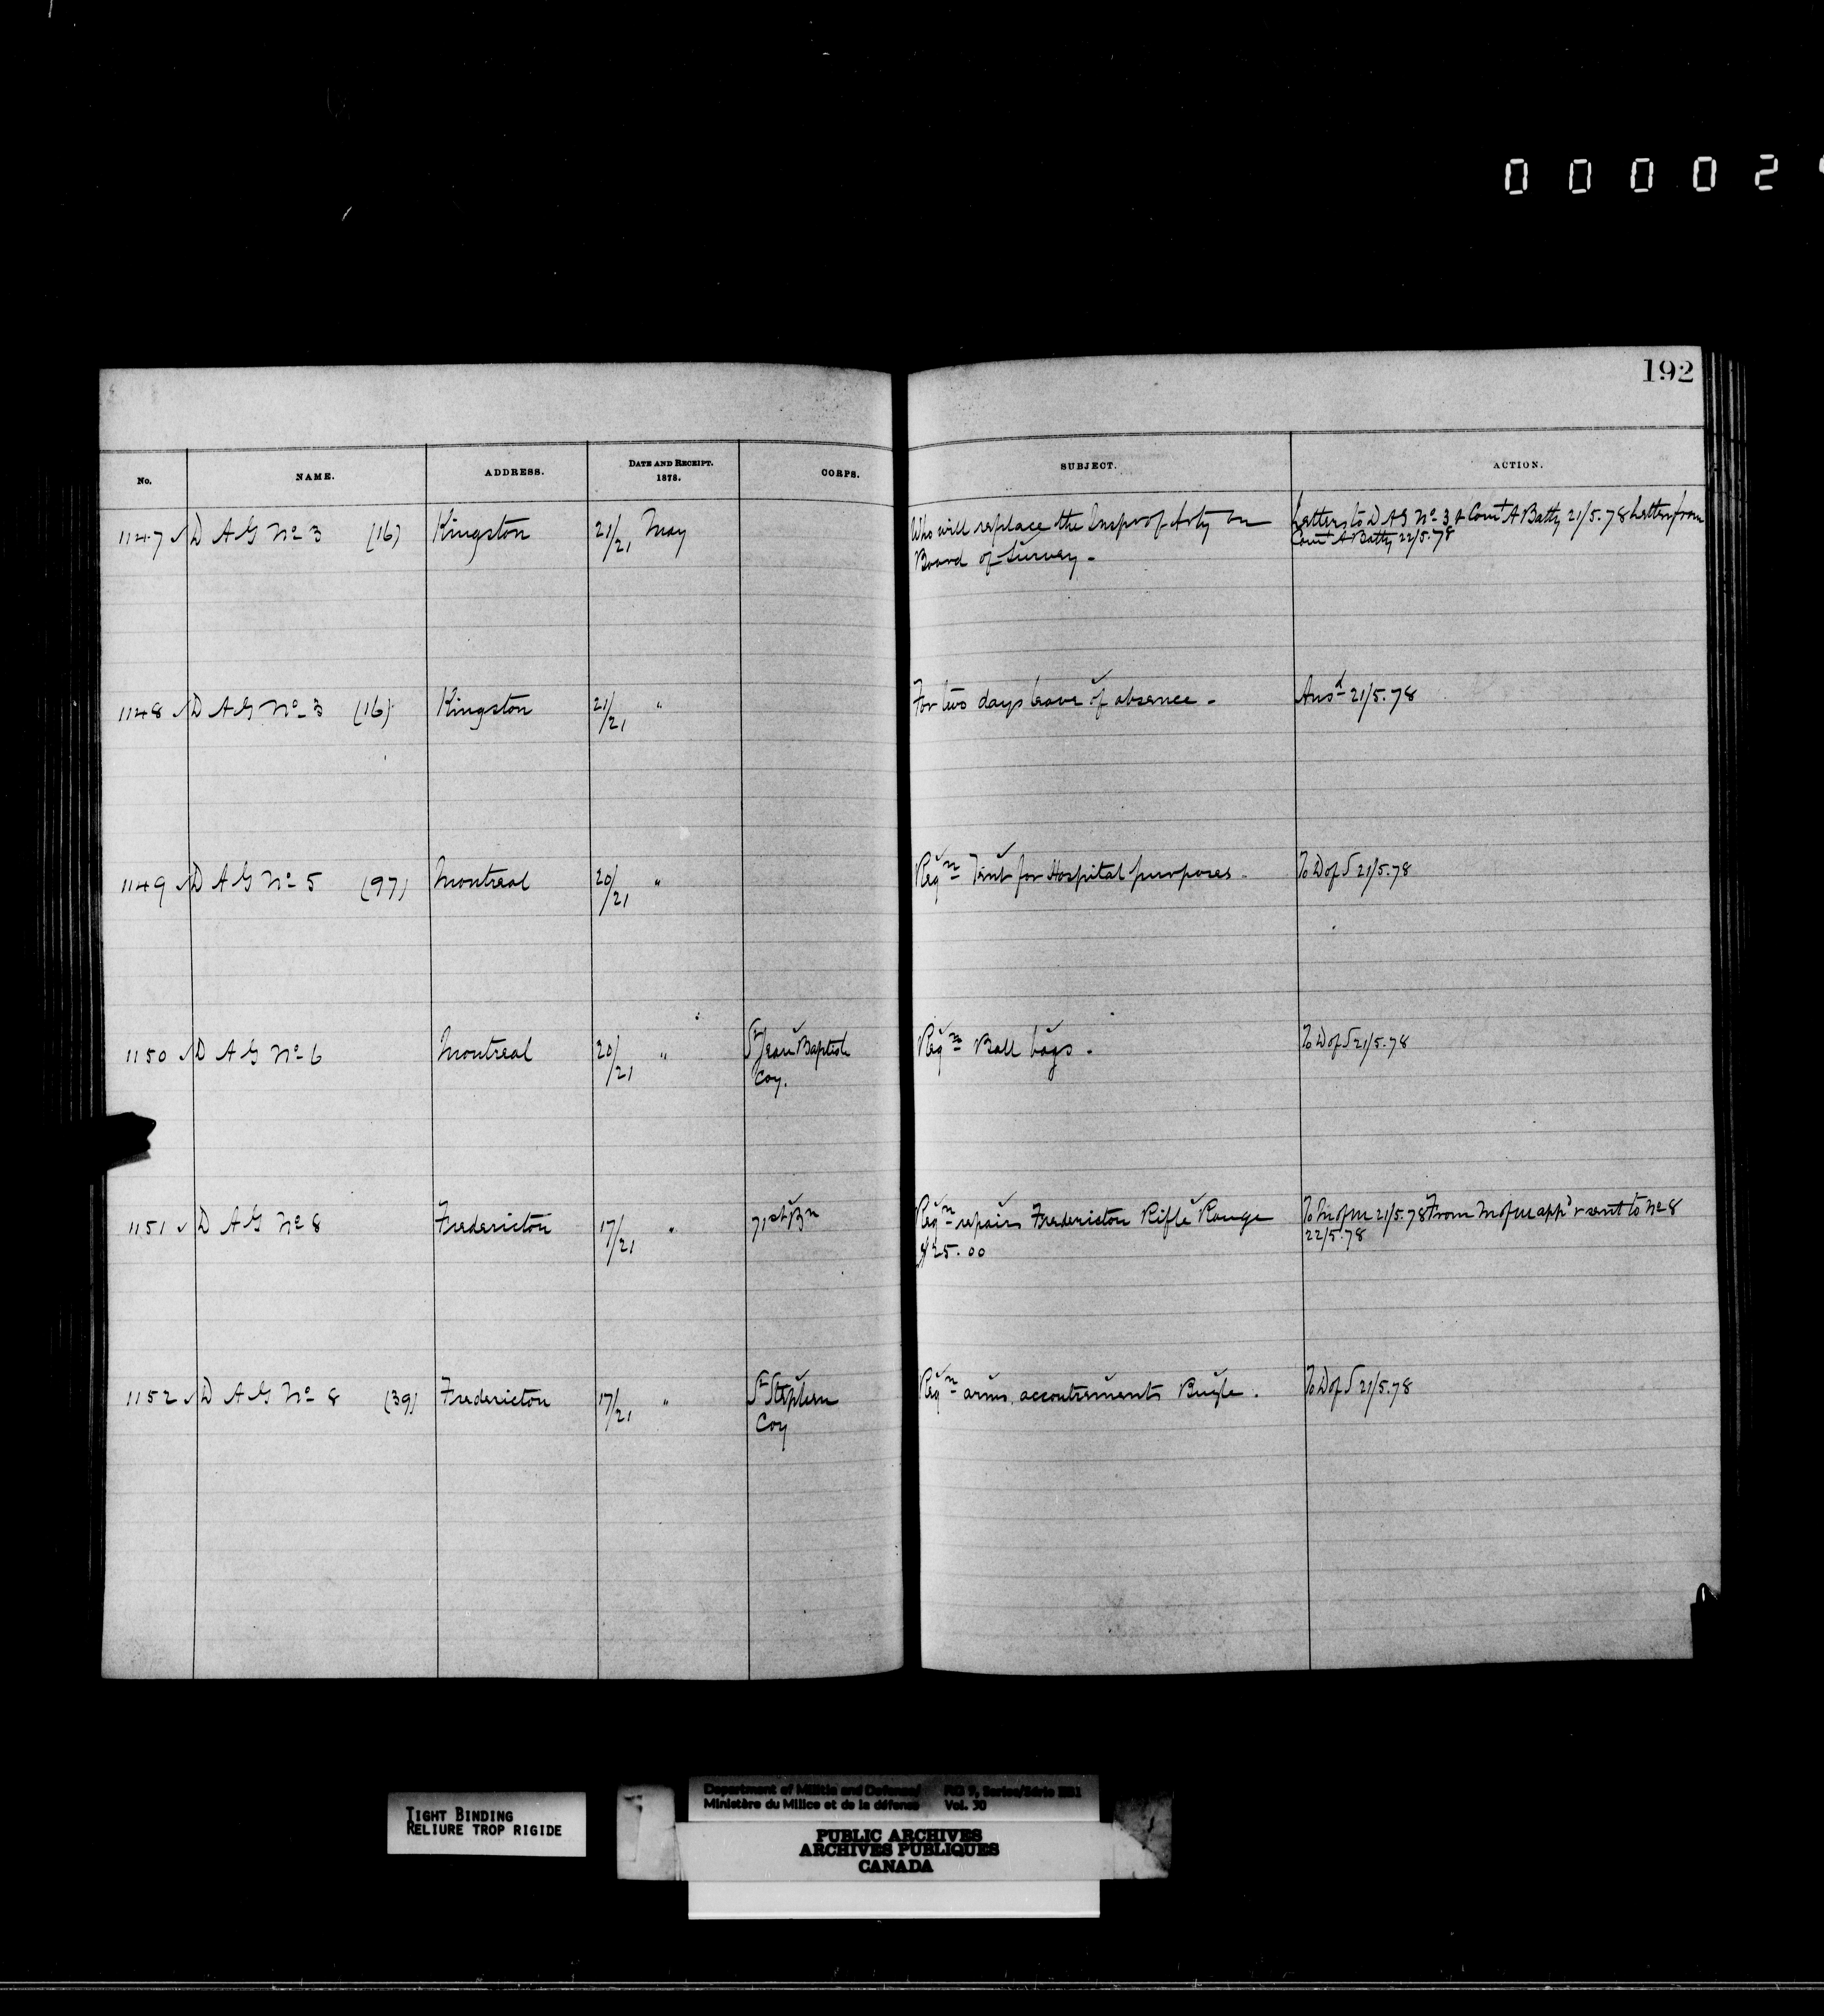 0 0 0 0 2
192
No. NAME. ADDRESS. DATE AND RECEIPT. 1878. CORPS. SUBJECT. ACTION.
1147 ✓ D A G No 3 (16) Kingston 21/21 May Who will replace the Inspr of Arty on Letters to D A G No 3 & Comt A Batty 21/5.78 Letter from
Board of Survey - Comt A Batty 22/5.78
1148 ✓ D A G No 3 (16) Kingston 21/21 " For two days leave of absence - Ansd 21/5.78
1149 ✓ D A G No 5 (97) Montreal 20/21 " Reqn Tent for Hospital purposes - To D of S 21/5.78
1150 ✓ D A G No 6 Montreal 20/21 " St Jean Baptiste Reqn Ball bags - To D of S 21/5.78
Coy.
1151 ✓ D A G No 8 Fredericton 17/21 " 71st Bn Reqn repairs Fredericton Rifle Range To M of M 21/5.78 From M of M appd & sent to No 8
$25.00 22/5.78
1152 ✓ D A G No 8 (39) Fredericton 17/21 " St Stephen Reqn arms, accoutrements Bugle. To D of S 21/5.78
Coy
TIGHT BINDING
RELIURE TROP RIGIDE
Department of Militia and Defence/ RG 9, Series/Série IIB1
Ministère du Milice et de la défense Vol. 30
PUBLIC ARCHIVES
ARCHIVES PUBLIQUES
CANADA